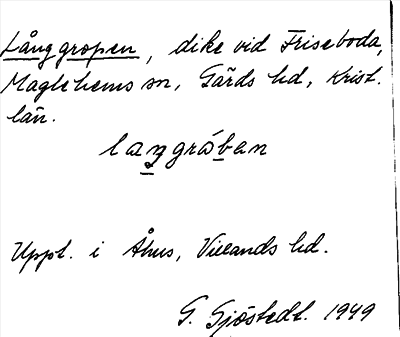 Långgropen, dike vid Friseboda,
Maglehems sn, Gärds hd, Krist.
län.
langrában
Uppt. i Åhus, Villands hd.
G. Sjöstedt. 1949